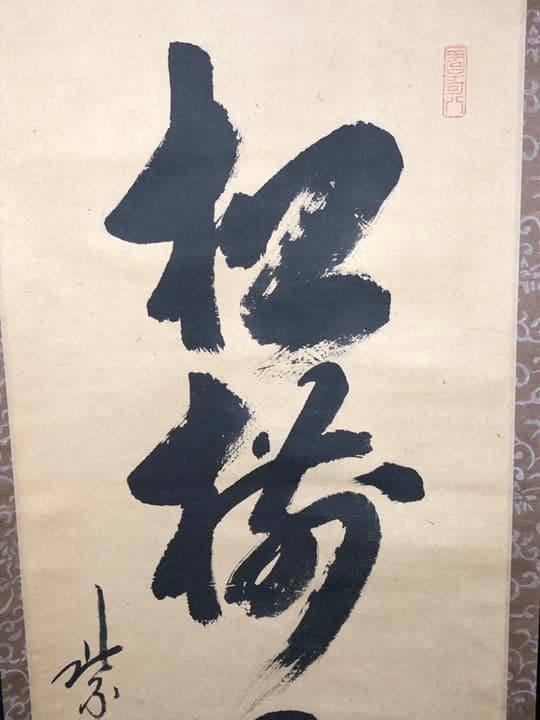 松樹
紫